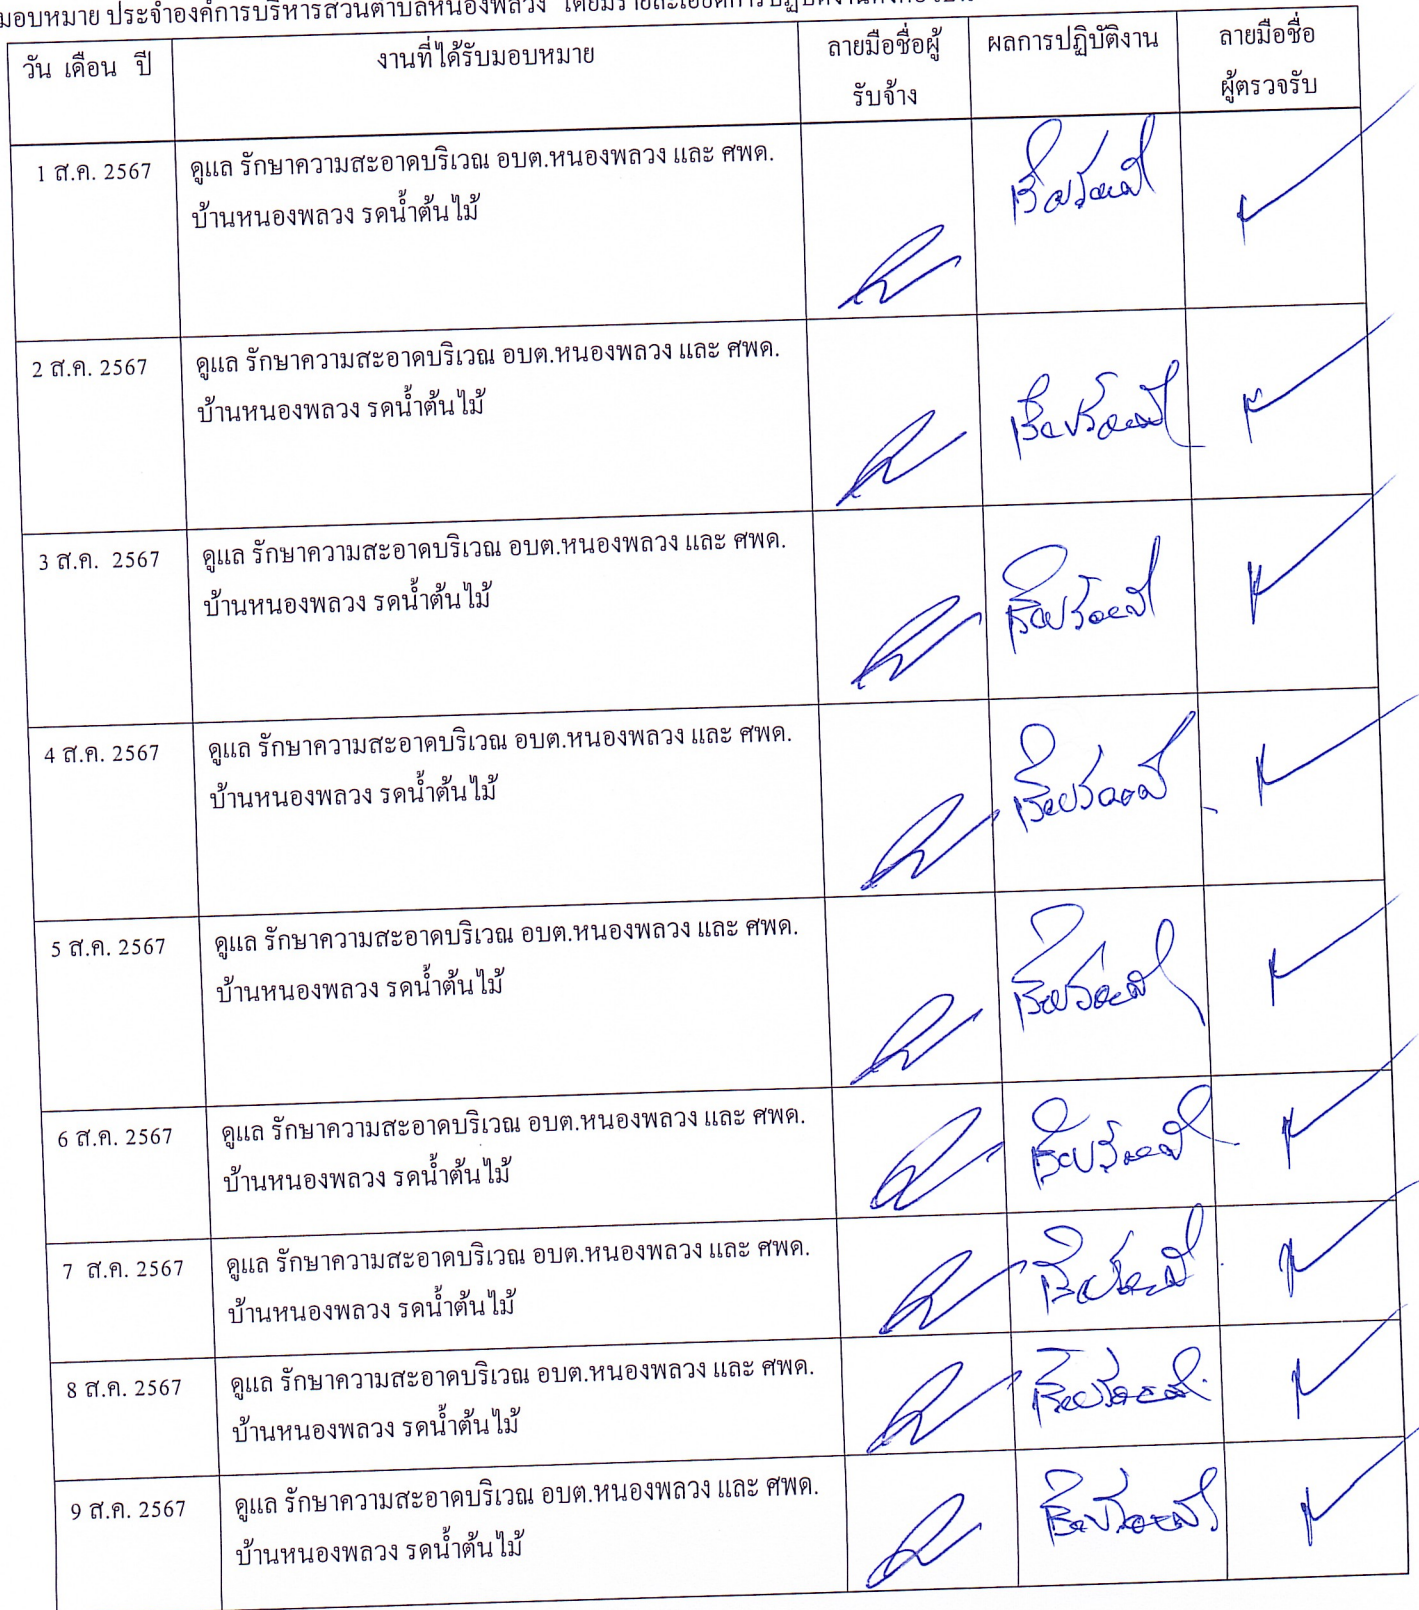 มอบหมาย ประจำองค์การบริหารส่วนตำบลหนองพลวง โดยมีรายละเอียดการปฏิบัติงานดังต่อไปนี้
วัน เดือน ปี งานที่ได้รับมอบหมาย ลายมือชื่อผู้รับจ้าง ผลการปฏิบัติงาน ลายมือชื่อผู้ตรวจรับ
1 ส.ค. 2567 ดูแล รักษาความสะอาดบริเวณ อบต.หนองพลวง และ ศพด. เรียบร้อยดี
บ้านหนองพลวง รดน้ำต้นไม้
2 ส.ค. 2567 ดูแล รักษาความสะอาดบริเวณ อบต.หนองพลวง และ ศพด. เรียบร้อยดี
บ้านหนองพลวง รดน้ำต้นไม้
3 ส.ค. 2567 ดูแล รักษาความสะอาดบริเวณ อบต.หนองพลวง และ ศพด. เรียบร้อยดี
บ้านหนองพลวง รดน้ำต้นไม้
4 ส.ค. 2567 ดูแล รักษาความสะอาดบริเวณ อบต.หนองพลวง และ ศพด. เรียบร้อยดี
บ้านหนองพลวง รดน้ำต้นไม้
5 ส.ค. 2567 ดูแล รักษาความสะอาดบริเวณ อบต.หนองพลวง และ ศพด. เรียบร้อยดี
บ้านหนองพลวง รดน้ำต้นไม้
6 ส.ค. 2567 ดูแล รักษาความสะอาดบริเวณ อบต.หนองพลวง และ ศพด. เรียบร้อยดี
บ้านหนองพลวง รดน้ำต้นไม้
7 ส.ค. 2567 ดูแล รักษาความสะอาดบริเวณ อบต.หนองพลวง และ ศพด. เรียบร้อยดี
บ้านหนองพลวง รดน้ำต้นไม้
8 ส.ค. 2567 ดูแล รักษาความสะอาดบริเวณ อบต.หนองพลวง และ ศพด. เรียบร้อยดี
บ้านหนองพลวง รดน้ำต้นไม้
9 ส.ค. 2567 ดูแล รักษาความสะอาดบริเวณ อบต.หนองพลวง และ ศพด. เรียบร้อยดี
บ้านหนองพลวง รดน้ำต้นไม้